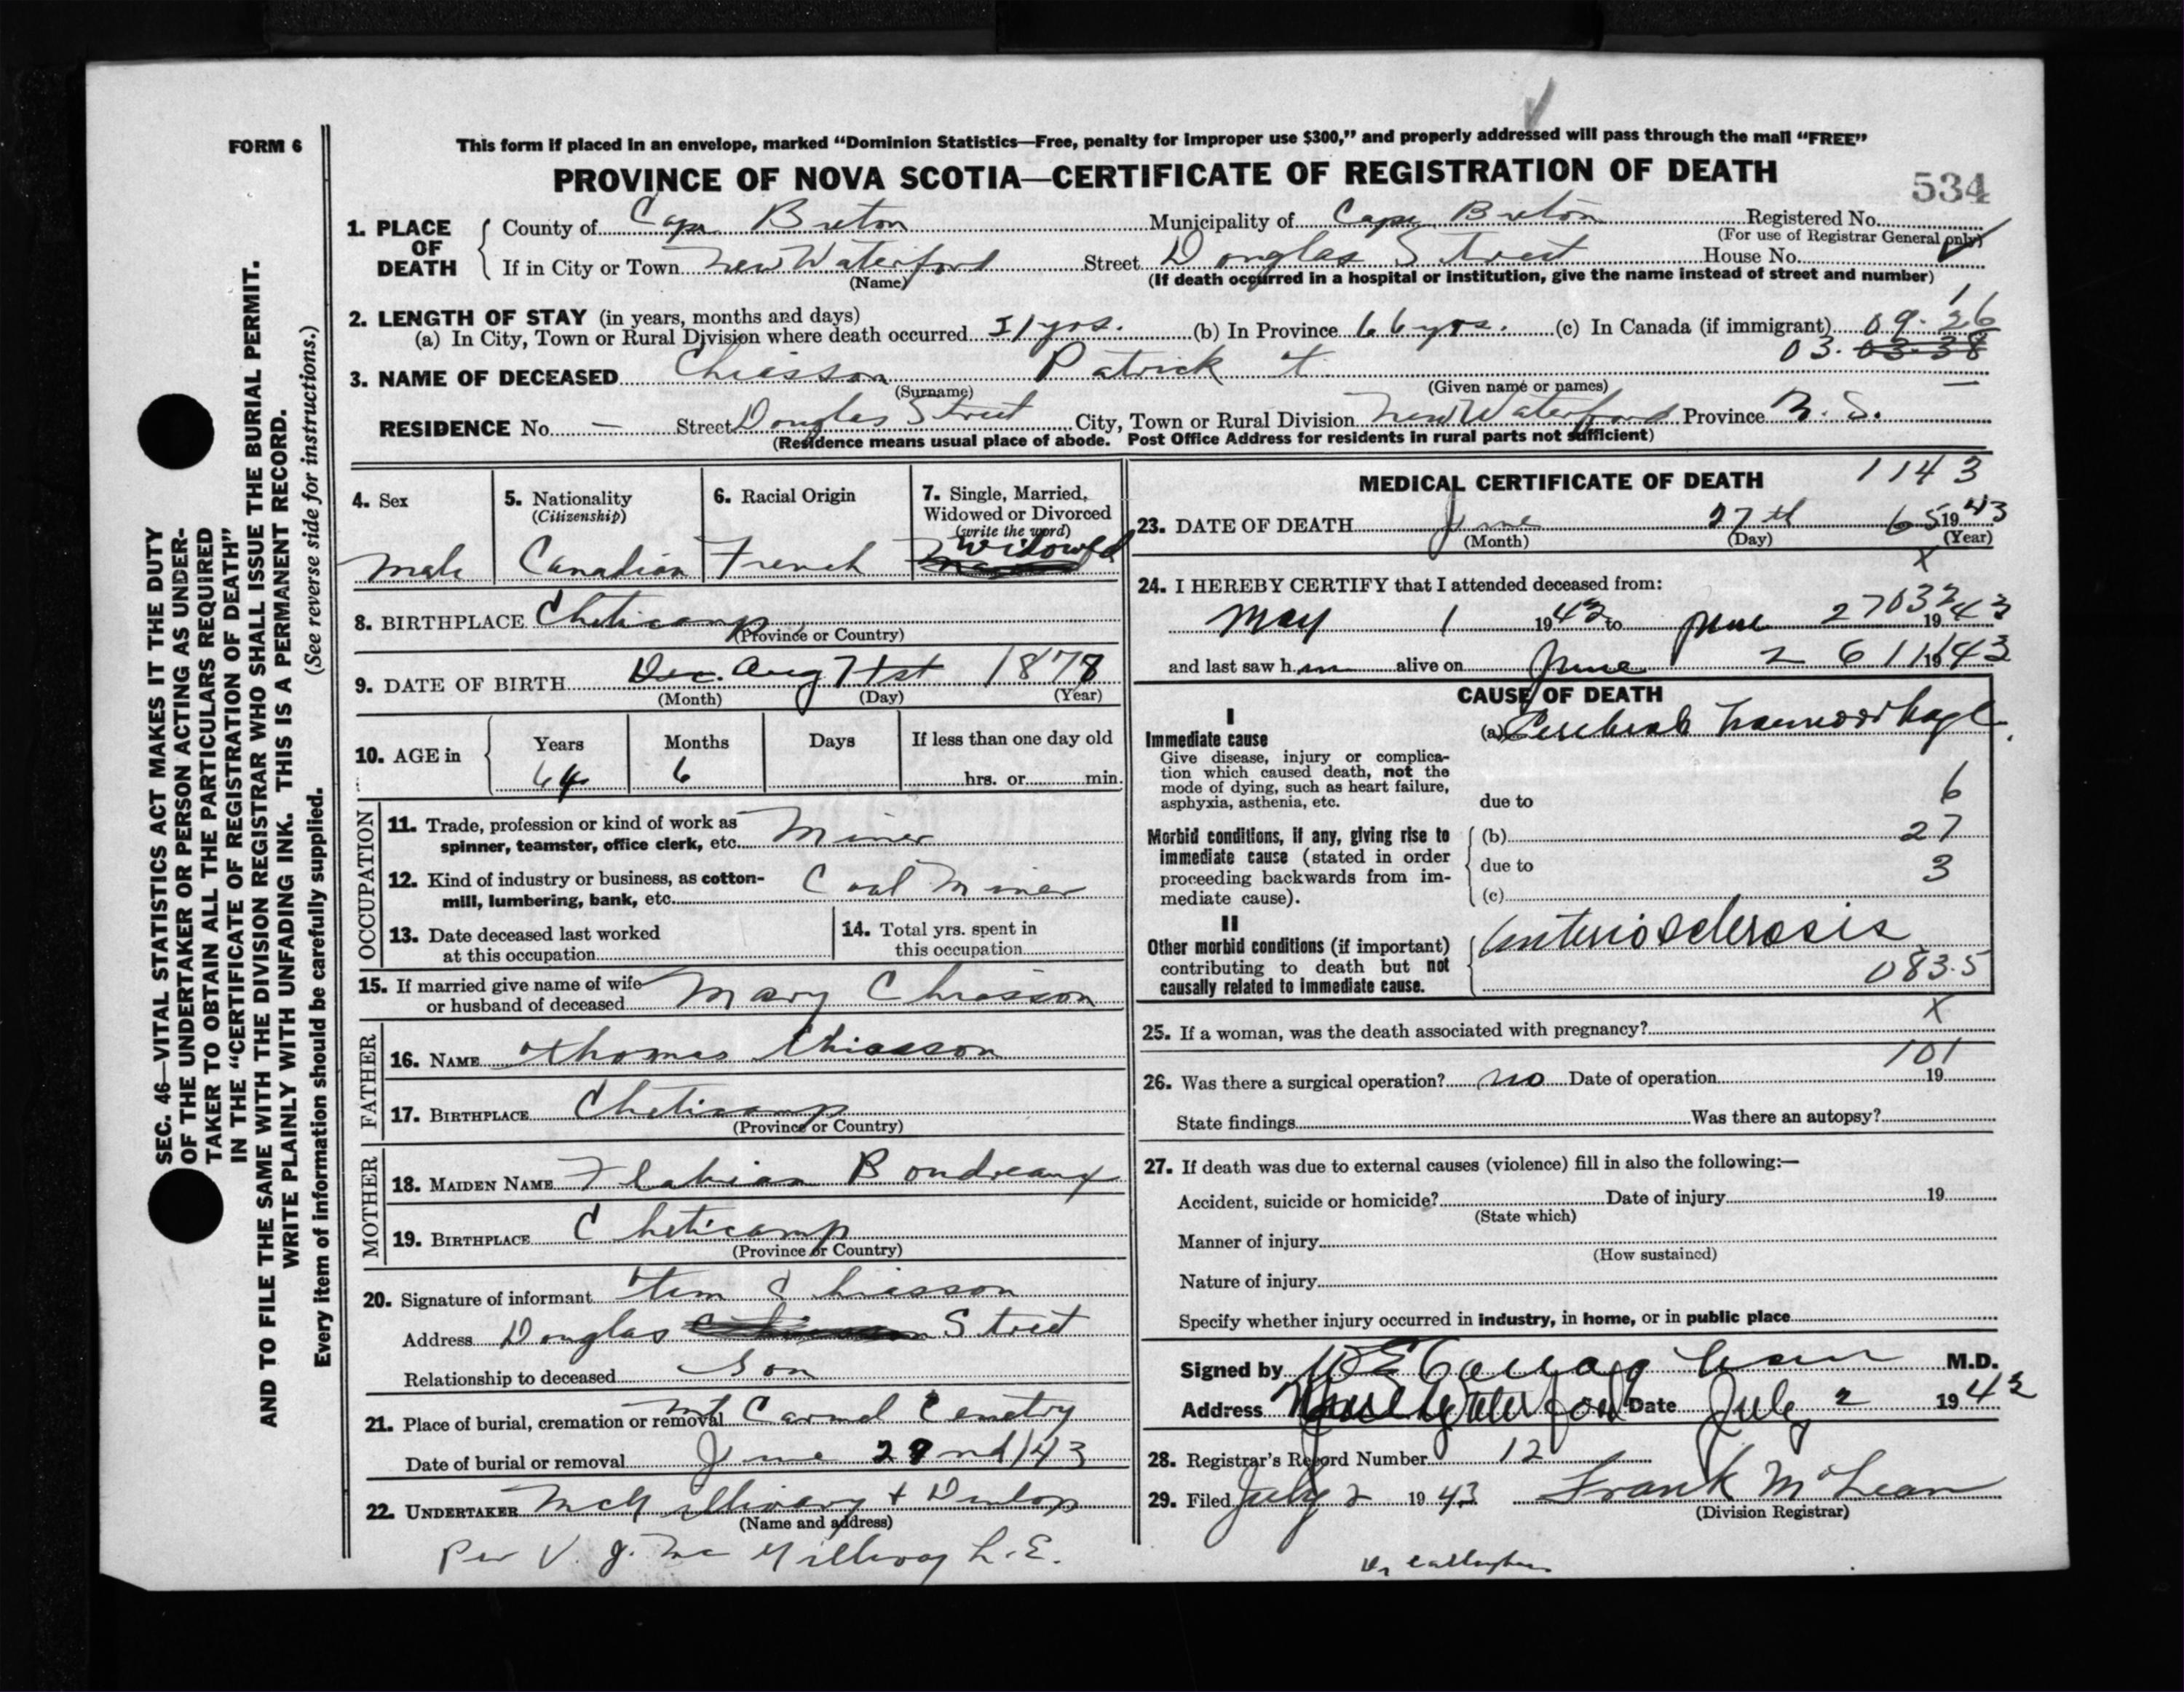 FORM 6
This form if placed in an envelope, marked “Dominion Statistics—Free, penalty for improper use $300,” and properly addressed will pass through the mail “FREE”
PROVINCE OF NOVA SCOTIA—CERTIFICATE OF REGISTRATION OF DEATH
534
1. PLACE OF DEATH
County of Cape Breton Municipality of Cape Breton Registered No.
(For use of Registrar General only)
If in City or Town New Waterford Street Douglas Street House No.
(Name) (If death occurred in a hospital or institution, give the name instead of street and number)
2. LENGTH OF STAY (in years, months and days)
(a) In City, Town or Rural Division where death occurred 31 yrs. (b) In Province 66 yrs. (c) In Canada (if immigrant) 09.26
03. 03.38
3. NAME OF DECEASED Chiasson Patrick T.
(Surname) (Given name or names)
RESIDENCE No. — Street Douglas Street City, Town or Rural Division New Waterford Province N. S.
(Residence means usual place of abode. Post Office Address for residents in rural parts not sufficient)
4. Sex
Male
5. Nationality
(Citizenship)
Canadian
6. Racial Origin
French
7. Single, Married,
Widowed or Divorced
(write the word)
Widowed
8. BIRTHPLACE Cheticamp
(Province or Country)
9. DATE OF BIRTH Dec. Aug 1st 1878
(Month) (Day) (Year)
10. AGE in Years Months Days If less than one day old
64 6 hrs. or min.
OCCUPATION
11. Trade, profession or kind of work as
spinner, teamster, office clerk, etc. Miner
12. Kind of industry or business, as cotton-
mill, lumbering, bank, etc. Coal Miner
13. Date deceased last worked
at this occupation
14. Total yrs. spent in
this occupation
15. If married give name of wife
or husband of deceased Mary Chiasson
FATHER
16. NAME Thomas Chiasson
17. BIRTHPLACE Cheticamp
(Province or Country)
MOTHER
18. MAIDEN NAME Flabian Boudreaux
19. BIRTHPLACE Cheticamp
(Province or Country)
20. Signature of informant Tim Chiasson
Address Douglas Street
Relationship to deceased Son
21. Place of burial, cremation or removal Mt Carmel Cemetry
Date of burial or removal June 29nd/43
22. UNDERTAKER McGillivary + Dunlop
(Name and address)
Per V. J. McGillivray L.E.
MEDICAL CERTIFICATE OF DEATH
1143
23. DATE OF DEATH June 27th 65 1943
(Month) (Day) (Year)
X
24. I HEREBY CERTIFY that I attended deceased from:
May 1 1943 to June 27 032 1943
and last saw him alive on June 26 111 1943
CAUSE OF DEATH
I
Immediate cause
Give disease, injury or complica-
tion which caused death, not the
mode of dying, such as heart failure,
asphyxia, asthenia, etc.
(a) Cerebral haemorrhage
due to 6
Morbid conditions, if any, giving rise to
immediate cause (stated in order
proceeding backwards from im-
mediate cause).
(b) 27
due to 3
(c)
II
Other morbid conditions (if important)
contributing to death but not
causally related to immediate cause.
Arteriosclerosis
083.5
X
25. If a woman, was the death associated with pregnancy?
101
26. Was there a surgical operation? no Date of operation 19
State findings Was there an autopsy?
27. If death was due to external causes (violence) fill in also the following:—
Accident, suicide or homicide? Date of injury 19
(State which)
Manner of injury
(How sustained)
Nature of injury
Specify whether injury occurred in industry, in home, or in public place
Signed by M.D.
Address New Waterford Date July 2 1943
28. Registrar's Record Number 12
29. Filed July 2 1943 Frank McLean
(Division Registrar)
Dr Callaghan
SEC. 46—VITAL STATISTICS ACT MAKES IT THE DUTY
OF THE UNDERTAKER OR PERSON ACTING AS UNDER-
TAKER TO OBTAIN ALL THE PARTICULARS REQUIRED
IN THE “CERTIFICATE OF REGISTRATION OF DEATH”
AND TO FILE THE SAME WITH THE DIVISION REGISTRAR WHO SHALL ISSUE THE BURIAL PERMIT.
WRITE PLAINLY WITH UNFADING INK. THIS IS A PERMANENT RECORD.
Every item of information should be carefully supplied. (See reverse side for instructions.)